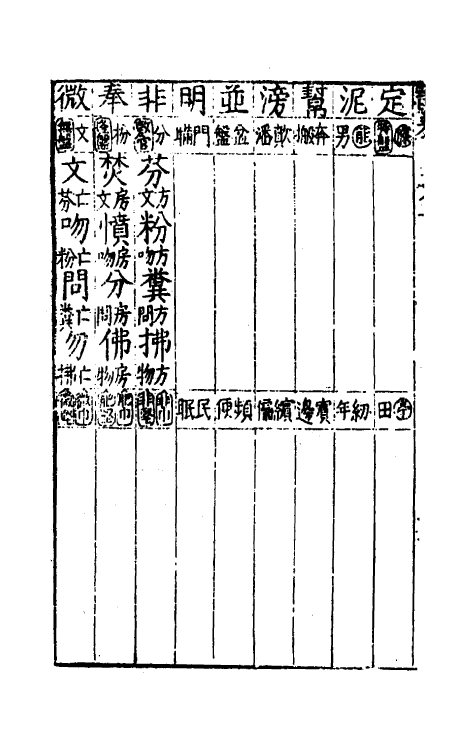 定
泥
幫
滂
並
明
非
奉
微
能男
奔搬
歕潘
盆盤
門瞞
分
枌
文
芬
方文
粉
方吻
糞
方問
拂
方物
焚
房文
憤
房吻
分
房問
佛
房物
文
亡芬
吻
亡粉
問
亡糞
勿
亡拂
田
紉年
賓邊
繽偏
頻便
民眠